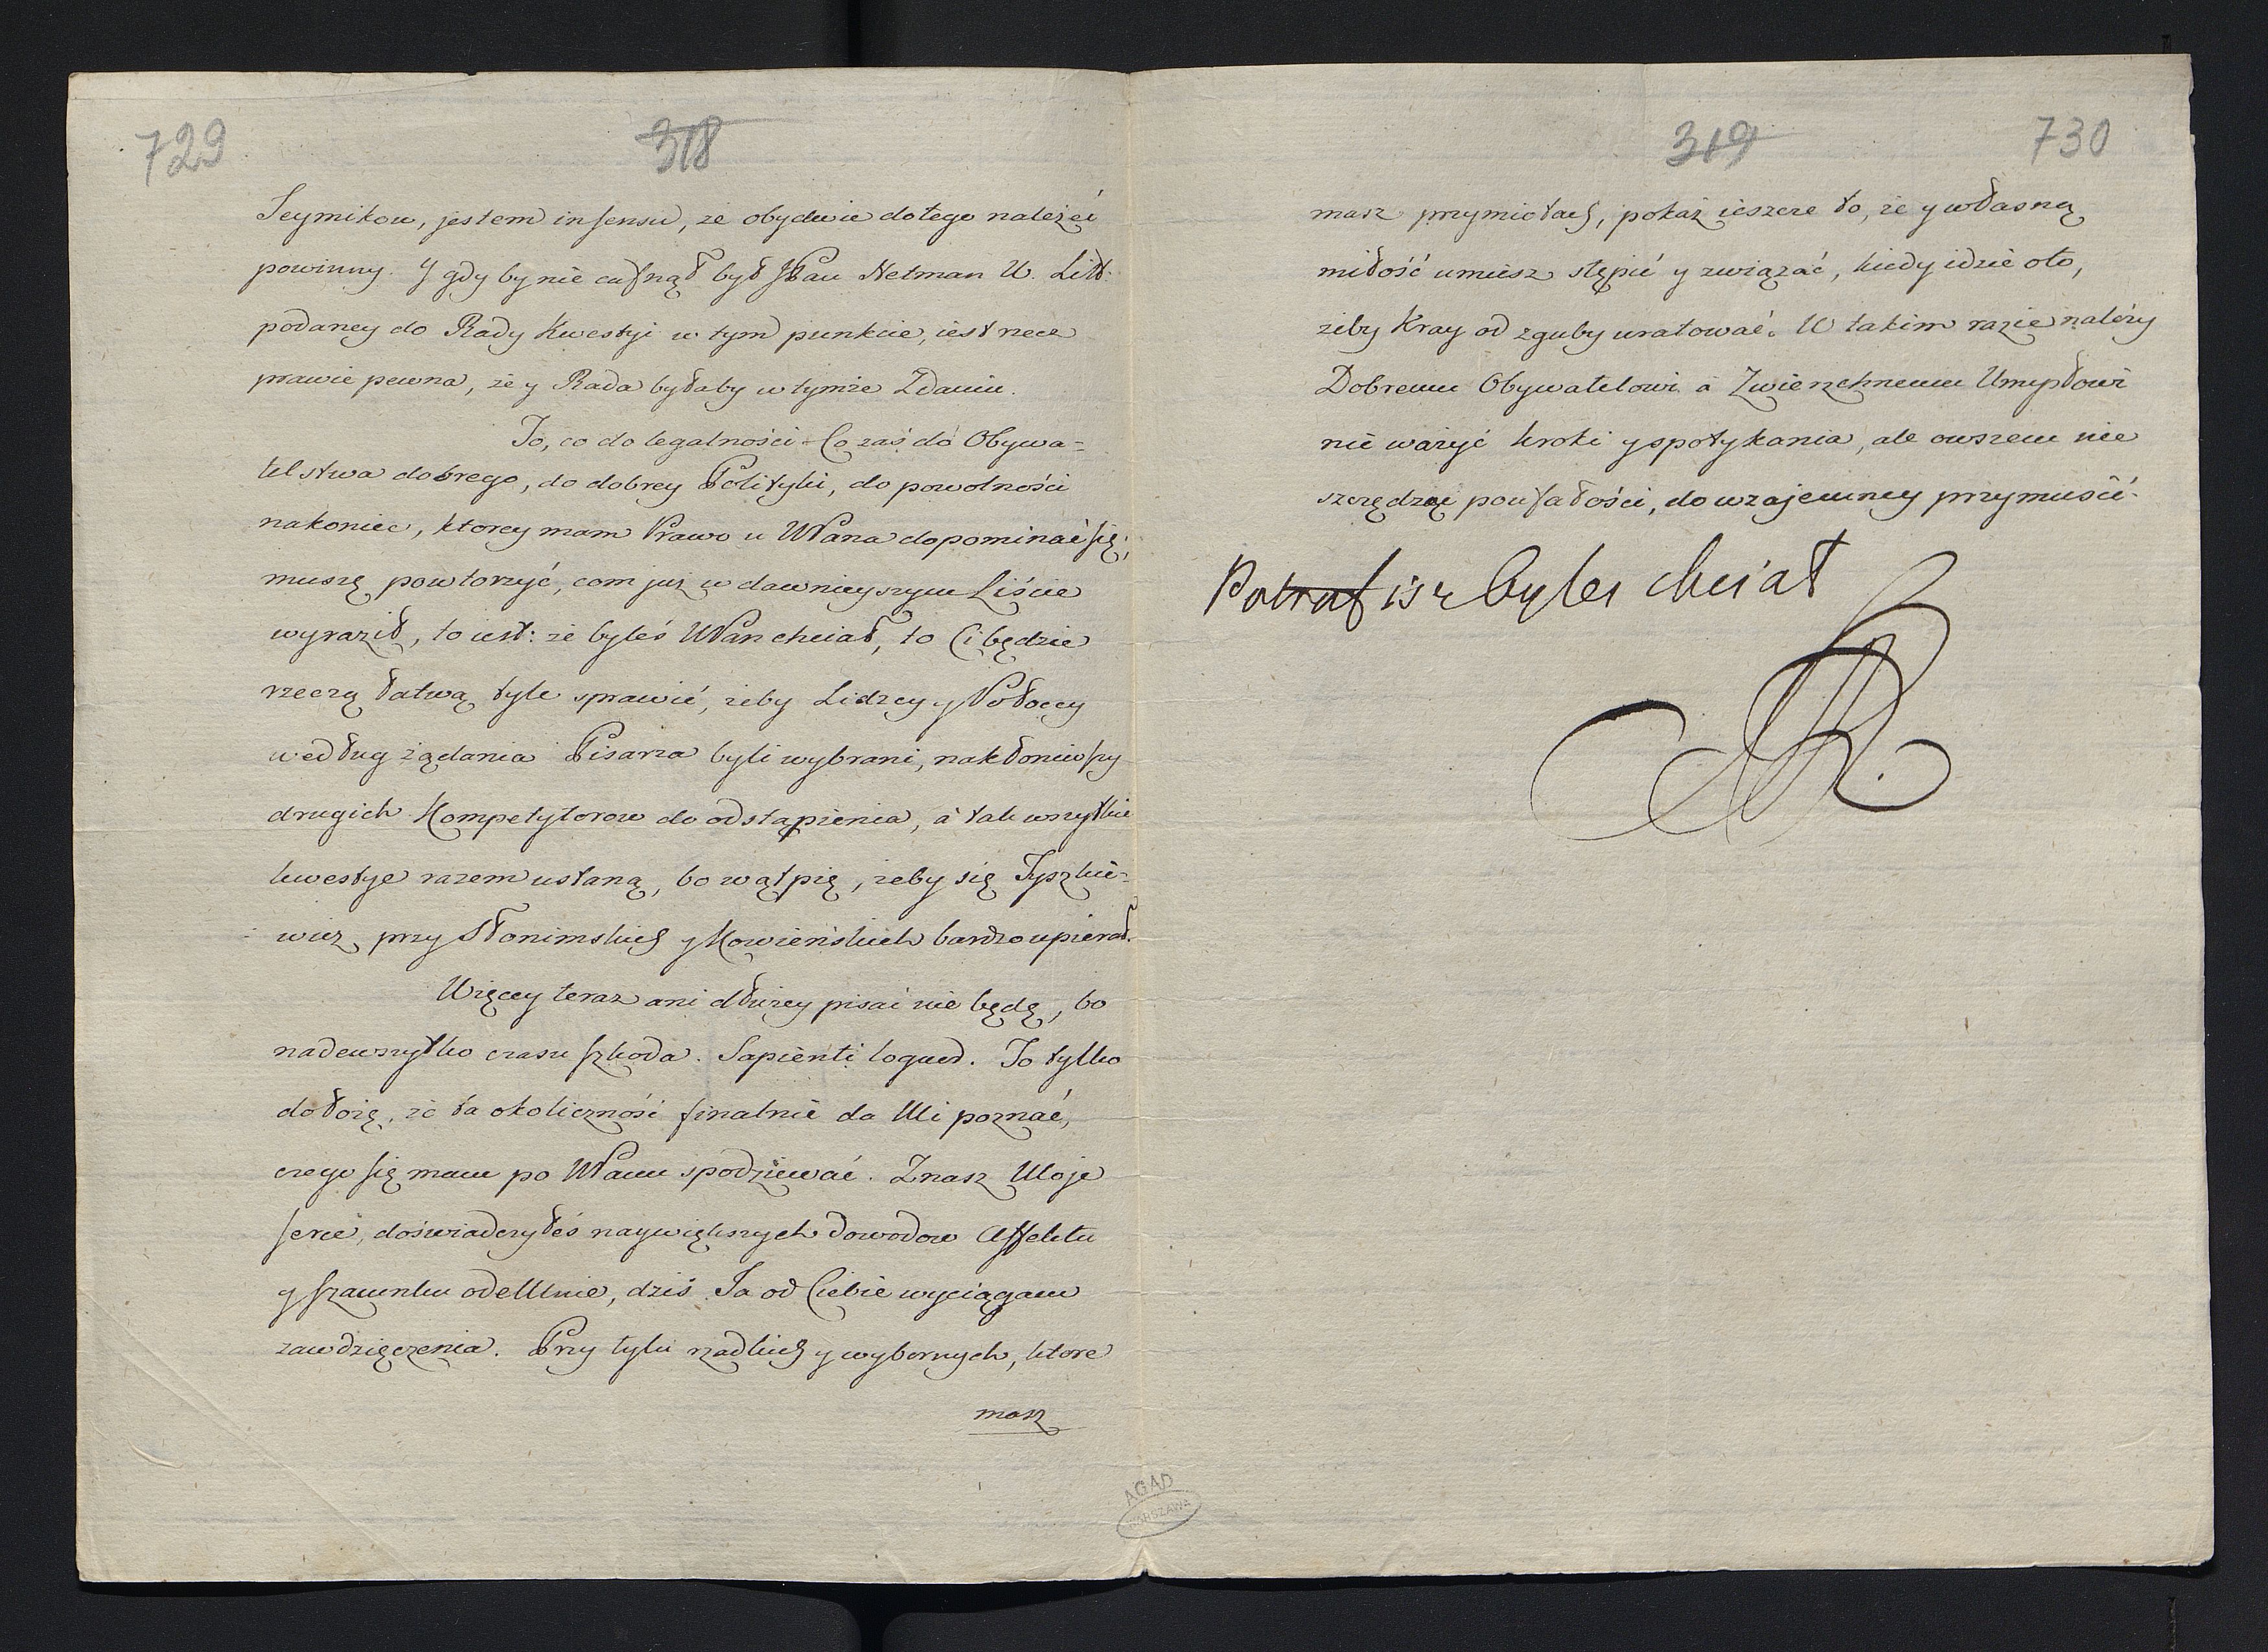 729
318
Seymikow, jestem in sensu, że obydwie do tego należeć
powinny. Y gdy by nie cofnął był JPan Hetman W. Litt:
podaney do Rady Kwestyi w tym punkcie, iest rzecz
prawie pewna, że y Rada byłaby w tymże Zdaniu.
To, co do legalności. Co zaś do Obywa=
telstwa dobrego, do dobrey Polityki, do powolności
nakoniec, ktorey mam Prawo u WPana dopominać się;
muszę powtorzyć, com już w dawnieyszym Liście
wyraził, to iest: że byleś WPan chciał, to Ci będzie
rzeczą łatwą tyle sprawić, żeby Lidzcy y Połoccy
według żądania Pisarza byli wybrani, nakłoniwszy
drugich Kompetytorow do odstąpienia, à tak wszytkie
kwestye razem ustaną, bo wątpię, żeby się Tyszkie=
wicz przy Słonimskich y Kowieńskich bardzo upierał.
Więcey teraz ani dłużey pisać nie będę, bo
nadewszytko czasu szkoda. Sapienti loquor. To tylko
dołożę, że ta okoliczność finalnie da Mi poznać,
czego się mam po WPanu spodziewać. Znasz Moje
serce, doświadczyłeś naywiększych dowodow Affektu
y szacunku odeMnie, dziś Ja od Ciebie wyciągam
zawdzięczenia. Przy tylu rzadkich y wybornych, ktore
masz
AGAD
WARSZAWA
319
730
masz przymiotach, pokaż ieszcze to, że y własną
miłość umiesz stępić y związać, kiedy idzie oto,
żeby Kray od zguby uratować. W takim razie należy
Dobremu Obywatelowi à Zwierzchnemu Umysłowi
nie ważyć kroki y spotykania, ale owszem nie
szczędząc poufałości, do wzajemney przymusić.
Potrafisz byles chciał
SAR.